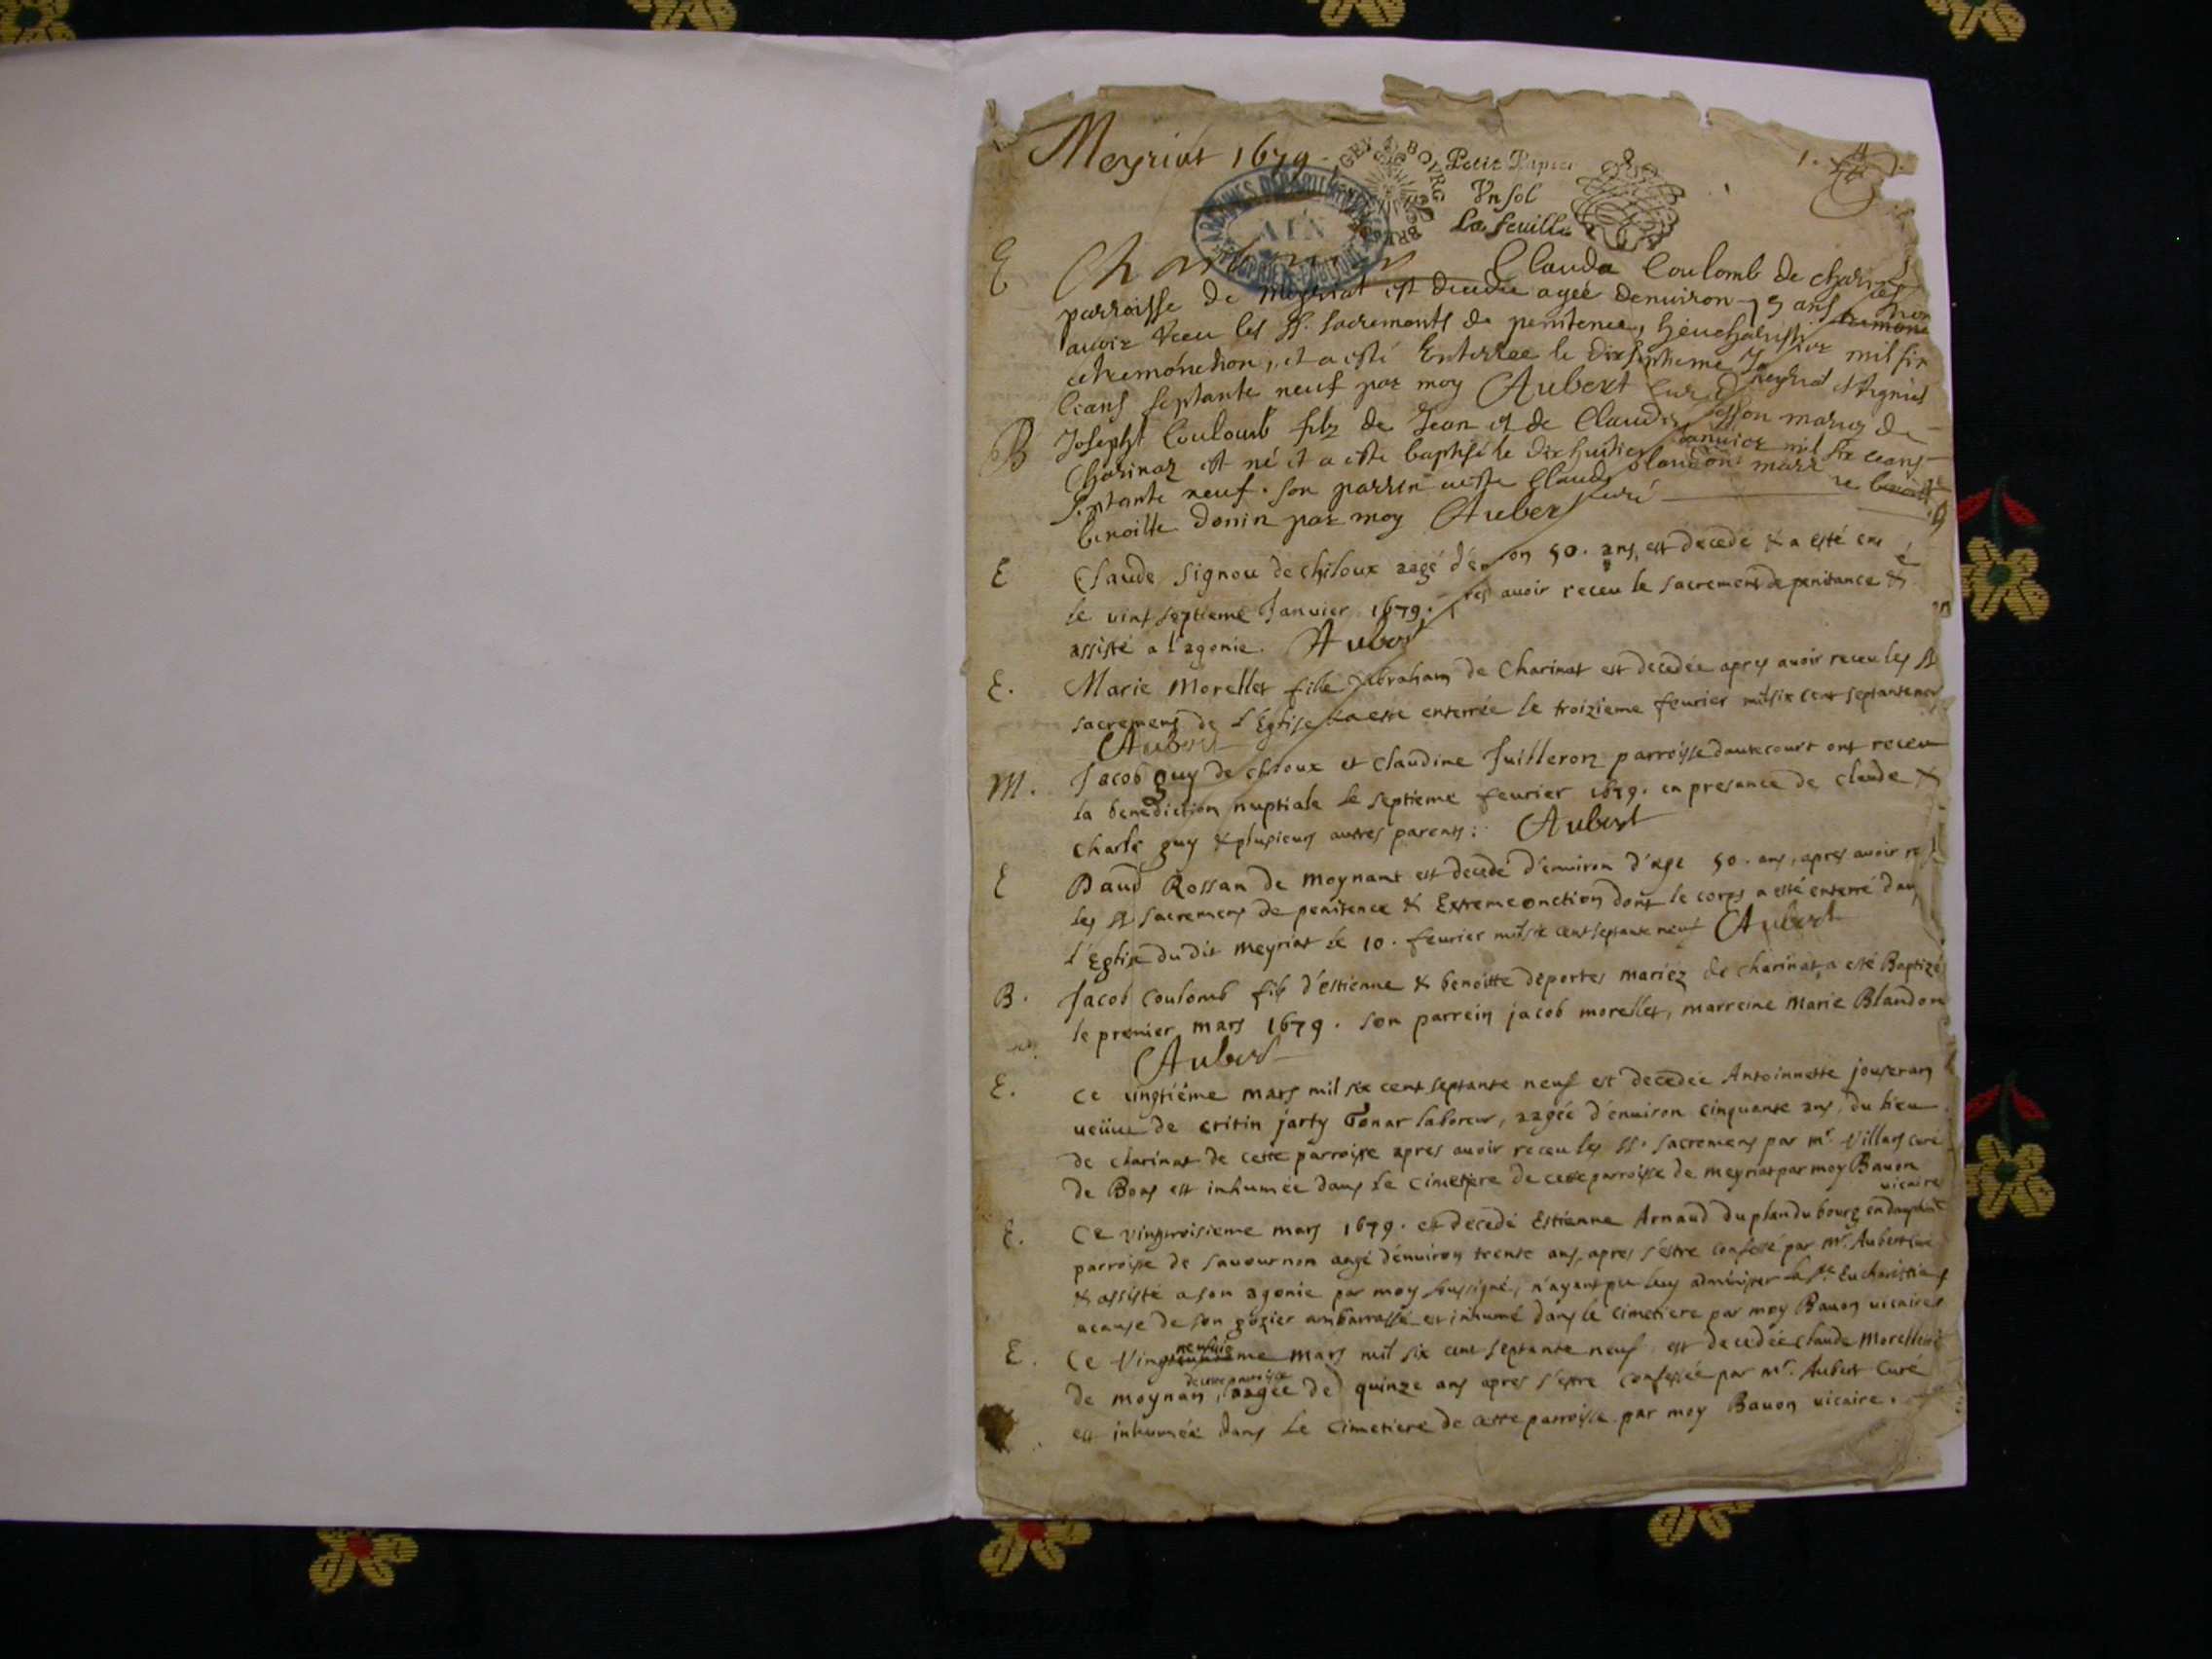 Meyriat 1679
GEY & BOURG BRES
Petit Papier
Un sol
La feuille
1.
ARCHIVES DEPARTEMENTALES
AIN
PROPRIÉTÉ PUBLIQUE
E Clauda Coulomb de charinas
parroisse de Meyriat est decedee agée denuiron 75 ans
auoir receu les SS. sacrements de penitence, heucharistie
etremónction, et a esté Enterree le dixseptieme mil six
Ceans septante neuf par moy Aubert Curé Meyriat
B Joseph Coulomb filz de Jean et de Claudi mariez de
Charinaz est né et a este baptisé le dixhuitier Januier mil six ceans
septante neuf. son parrin aeste Claude blandon marr
benoitte donin par moy Aubert curé
E Claude Signou de chiloux aagé d'en on 50. ans, est decede & a esté en
le uint septieme Januier 1679. res auoir receu le sacrement de penitance &
assisté a l'agonie. Aubert
E. Marie Morellet fille Abraham de Charinat est decedée apres auoir receu les SS
sacremens de l'Eglise & a esté enterrée le troizieme feurier mil six cent septante neuf
Aubert
M. Jacob guy de chiloux et Claudine Juilleron parroisse dautecourt ont receu
la benediction nuptiale le septieme feurier 1679. en presance de claude &
charle guy & plusieurs autres parents: Aubert
E Daud Rossan de Moynant est decedé d'environ d'age 50. ans, apres auoir re
les SS sacremens de penitence & Extremeonction dont le corps a esté enterré dan
l'Eglise du dit Meyriat le 10. feurier mil six cent septante neuf Aubert
B. Jacob Coulomb fils d'estienne & benoitte deportes mariez de charinat, a esté Baptizé
le premier mars 1679. son parrein jacob morellet, marreine Marie Blandon
Aubert
E. Ce uingtiéme mars mil six cent septante neuf est decedée Antoinnette jouseran
ueüue de critin jarty Tonar laboreur, aagée d'enuiron cinquante ans, du lieu
de charinat de cette parroisse apres auoir receu les SS. sacremens par mr. Villars curé
de Bons est inhumée dans le Cimetiere de cette parroisse de meyriat par moy Bauon
uicaire
E. Ce vingtroisieme mars 1679. est decedé Estienne Arnaud du plan du bourg en dauphiné
parroisse de sauournon aagé d'enuiron trente ans, apres s'estre confessé par Mr. Aubert curé
& assisté a son agonie par moy soussigné, n'ayant peu luy administrer la Ste Eucharistie
acause de son gozier ambarrassé est inhumé dans le Cimetiere par moy Bauon uicaire
neufuie
E. Ce Vingt me mars mil six cent septante neuf est decedée claude Morellet
de cette parroisse
de moynan, aagée de quinze ans apres s'estre confessée par Mr. Aubert Curé
est inhumée dans le Cimetiere de cette parroisse par moy Bauon uicaire.